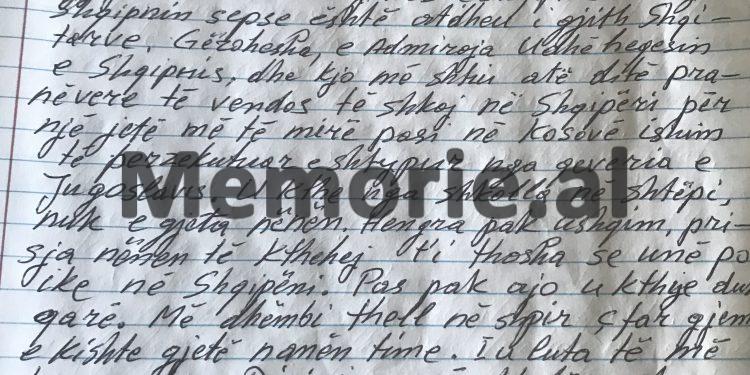 Shqipnin sepse është Atdheu i gjith Shqi-
tarve. Gëzohesha, e Admiroja Udhëheqsin
e Shqipnis, dhe kjo më shtiu atë ditë pra-
nëvere të vendos të shkoj në Shqipëri për
një jetë më të mirë pasi në Kosovë ishim
të perzekutuar e shtypur nga qeveria e
Jugosllavis. U ktheva nga shkolla në shtëpi,
nuk e gjeta nënën. Hengra pak ushqim, pri-
sja nënën të kthehej t'i thosha se unë po
ike në Shqipëni. Pas pak ajo u kthye duk
qarë. Më dhëmbi thell në shpir çfar gjem
e kishte gjetë nanën time. I u luta të më
Memorie.al